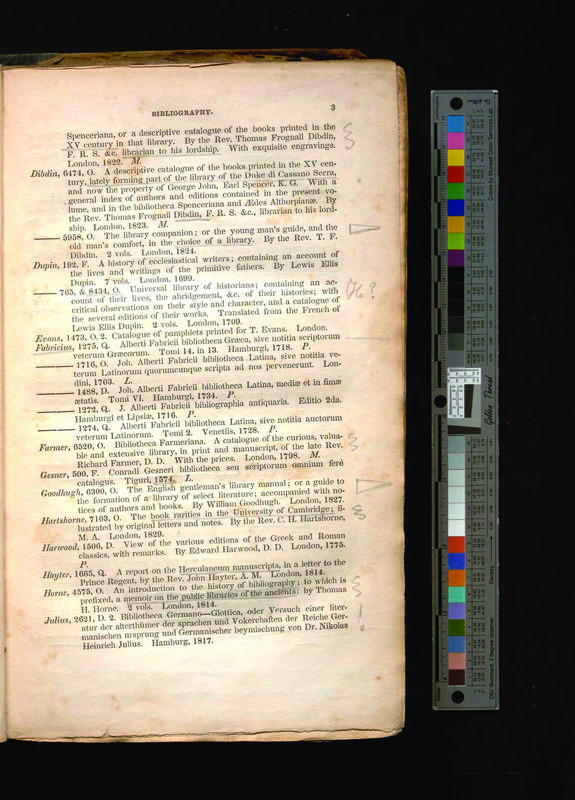 BIBLIOGRAPHY. 3
Spenceriana, or a descriptive catalogue of the books printed in the
XV century in that library. By the Rev. Thomas Frognall Dibdin,
F. R. S. &c. librarian to his lordship. With exquisite engravings.
London, 1822. M.
Dibdin, 6474, O. A descriptive catalogue of the books printed in the XV cen-
tury, lately forming part of the library of the Duke di Cassano Serra,
and now the property of George John, Earl Spencer, K. G. With a
general index of authors and editions contained in the present vo-
lume, and in the bibliotheca Spenceriana and Ædes Althorpianæ. By
the Rev. Thomas Frognall Dibdin, F. R. S. &c., librarian to his lord-
ship. London, 1823. M.
—— 5958, O. The library companion; or the young man's guide, and the
old man's comfort, in the choice of a library. By the Rev. T. F.
Dibdin. 2 vols. London, 1824.
Dupin, 192, F. A history of ecclesiastical writers; containing an account of
the lives and writings of the primitive fathers. By Lewis Ellis
Dupin. 7 vols. London, 1699.
—— 765, & 8434, O. Universal library of historians; containing an ac-
count of their lives, the abridgement, &c. of their histories; with
critical observations on their style and character, and a catalogue of
the several editions of their works. Translated from the French of
Lewis Ellis Dupin. 2 vols. London, 1709.
Evans, 1473, O. 2. Catalogue of pamphlets printed for T. Evans. London.
Fabricius, 1275, Q. Alberti Fabricii bibliotheca Græca, sive notitia scriptorum
veterum Græcorum. Tomi 14, in 13. Hamburgi, 1718. P.
—— 1716, O. Joh. Alberti Fabricii bibliotheca Latina, sive notitia ve-
terum Latinorum quorumcunque scripta ad nos pervenerunt. Lon-
dini, 1703. L.
—— 1488, D. Joh. Alberti Fabricii bibliotheca Latina, mediæ et in fimæ
ætatis. Tomi VI. Hamburgi, 1734. P.
—— 1272, Q. J. Alberti Fabricii bibliographia antiquaria. Editio 2da.
Hamburgi et Lipsiæ, 1716. P.
—— 1274, Q. Alberti Fabricii bibliotheca Latina, sive notitia auctorum
veterum Latinorum. Tomi 2. Venetiis, 1728. P.
Farmer, 6520, O. Bibliotheca Farmeriana. A catalogue of the curious, valua-
ble and extensive library, in print and manuscript, of the late Rev.
Richard Farmer, D. D. With the prices. London, 1798. M.
Gesner, 500, F. Conradi Gesneri bibliotheca seu scriptorum omnium ferè
catalogus. Tiguri, 1574. L.
Goodhugh, 6300, O. The English gentleman's library manual; or a guide to
the formation of a library of select literature; accompanied with no-
tices of authors and books. By William Goodhugh. London, 1827.
Hartshorne, 7103, O. The book rarities in the University of Cambridge; il-
lustrated by original letters and notes. By the Rev. C. H. Hartshorne,
M. A. London, 1829.
Harwood, 1506, D. View of the various editions of the Greek and Roman
classics, with remarks. By Edward Harwood, D. D. London, 1775.
P.
Hayter, 1665, Q. A report on the Herculaneum manuscripts, in a letter to the
Prince Regent, by the Rev. John Hayter, A. M. London, 1814.
Horne, 4575, O. An introduction to the history of bibliography; to which is
prefixed, a memoir on the public libraries of the ancients: by Thomas
H. Horne. 2 vols. London, 1814.
Julius, 2621, D. 2. Bibliotheca Germano—Glottica, oder Versuch einer liter-
atur der alterthümer der sprachen und Vokerchaften der Reiche Ger-
manischen ursprung und Germanischer beymischung von Dr. Nikolas
Heinrich Julius. Hamburg, 1817.
Golden Thread